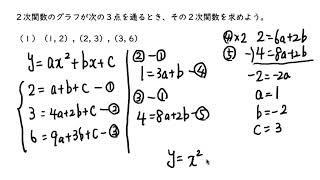 2次関数のグラフが次の3点を通るとき、その2次関数を求めよう。
(1) (1, 2) , (2, 3) , (3, 6)
y=ax²+bx+c
2=a+b+c-①
3=4a+2b+c-②
6=9a+3b+c-③
②-①
1=3a+b-④
③-①
4=8a+2b-⑤
④×2 2=6a+2b
⑤ -)4=8a+2b
-2=-2a
a=1
b=-2
c=3
y=x²